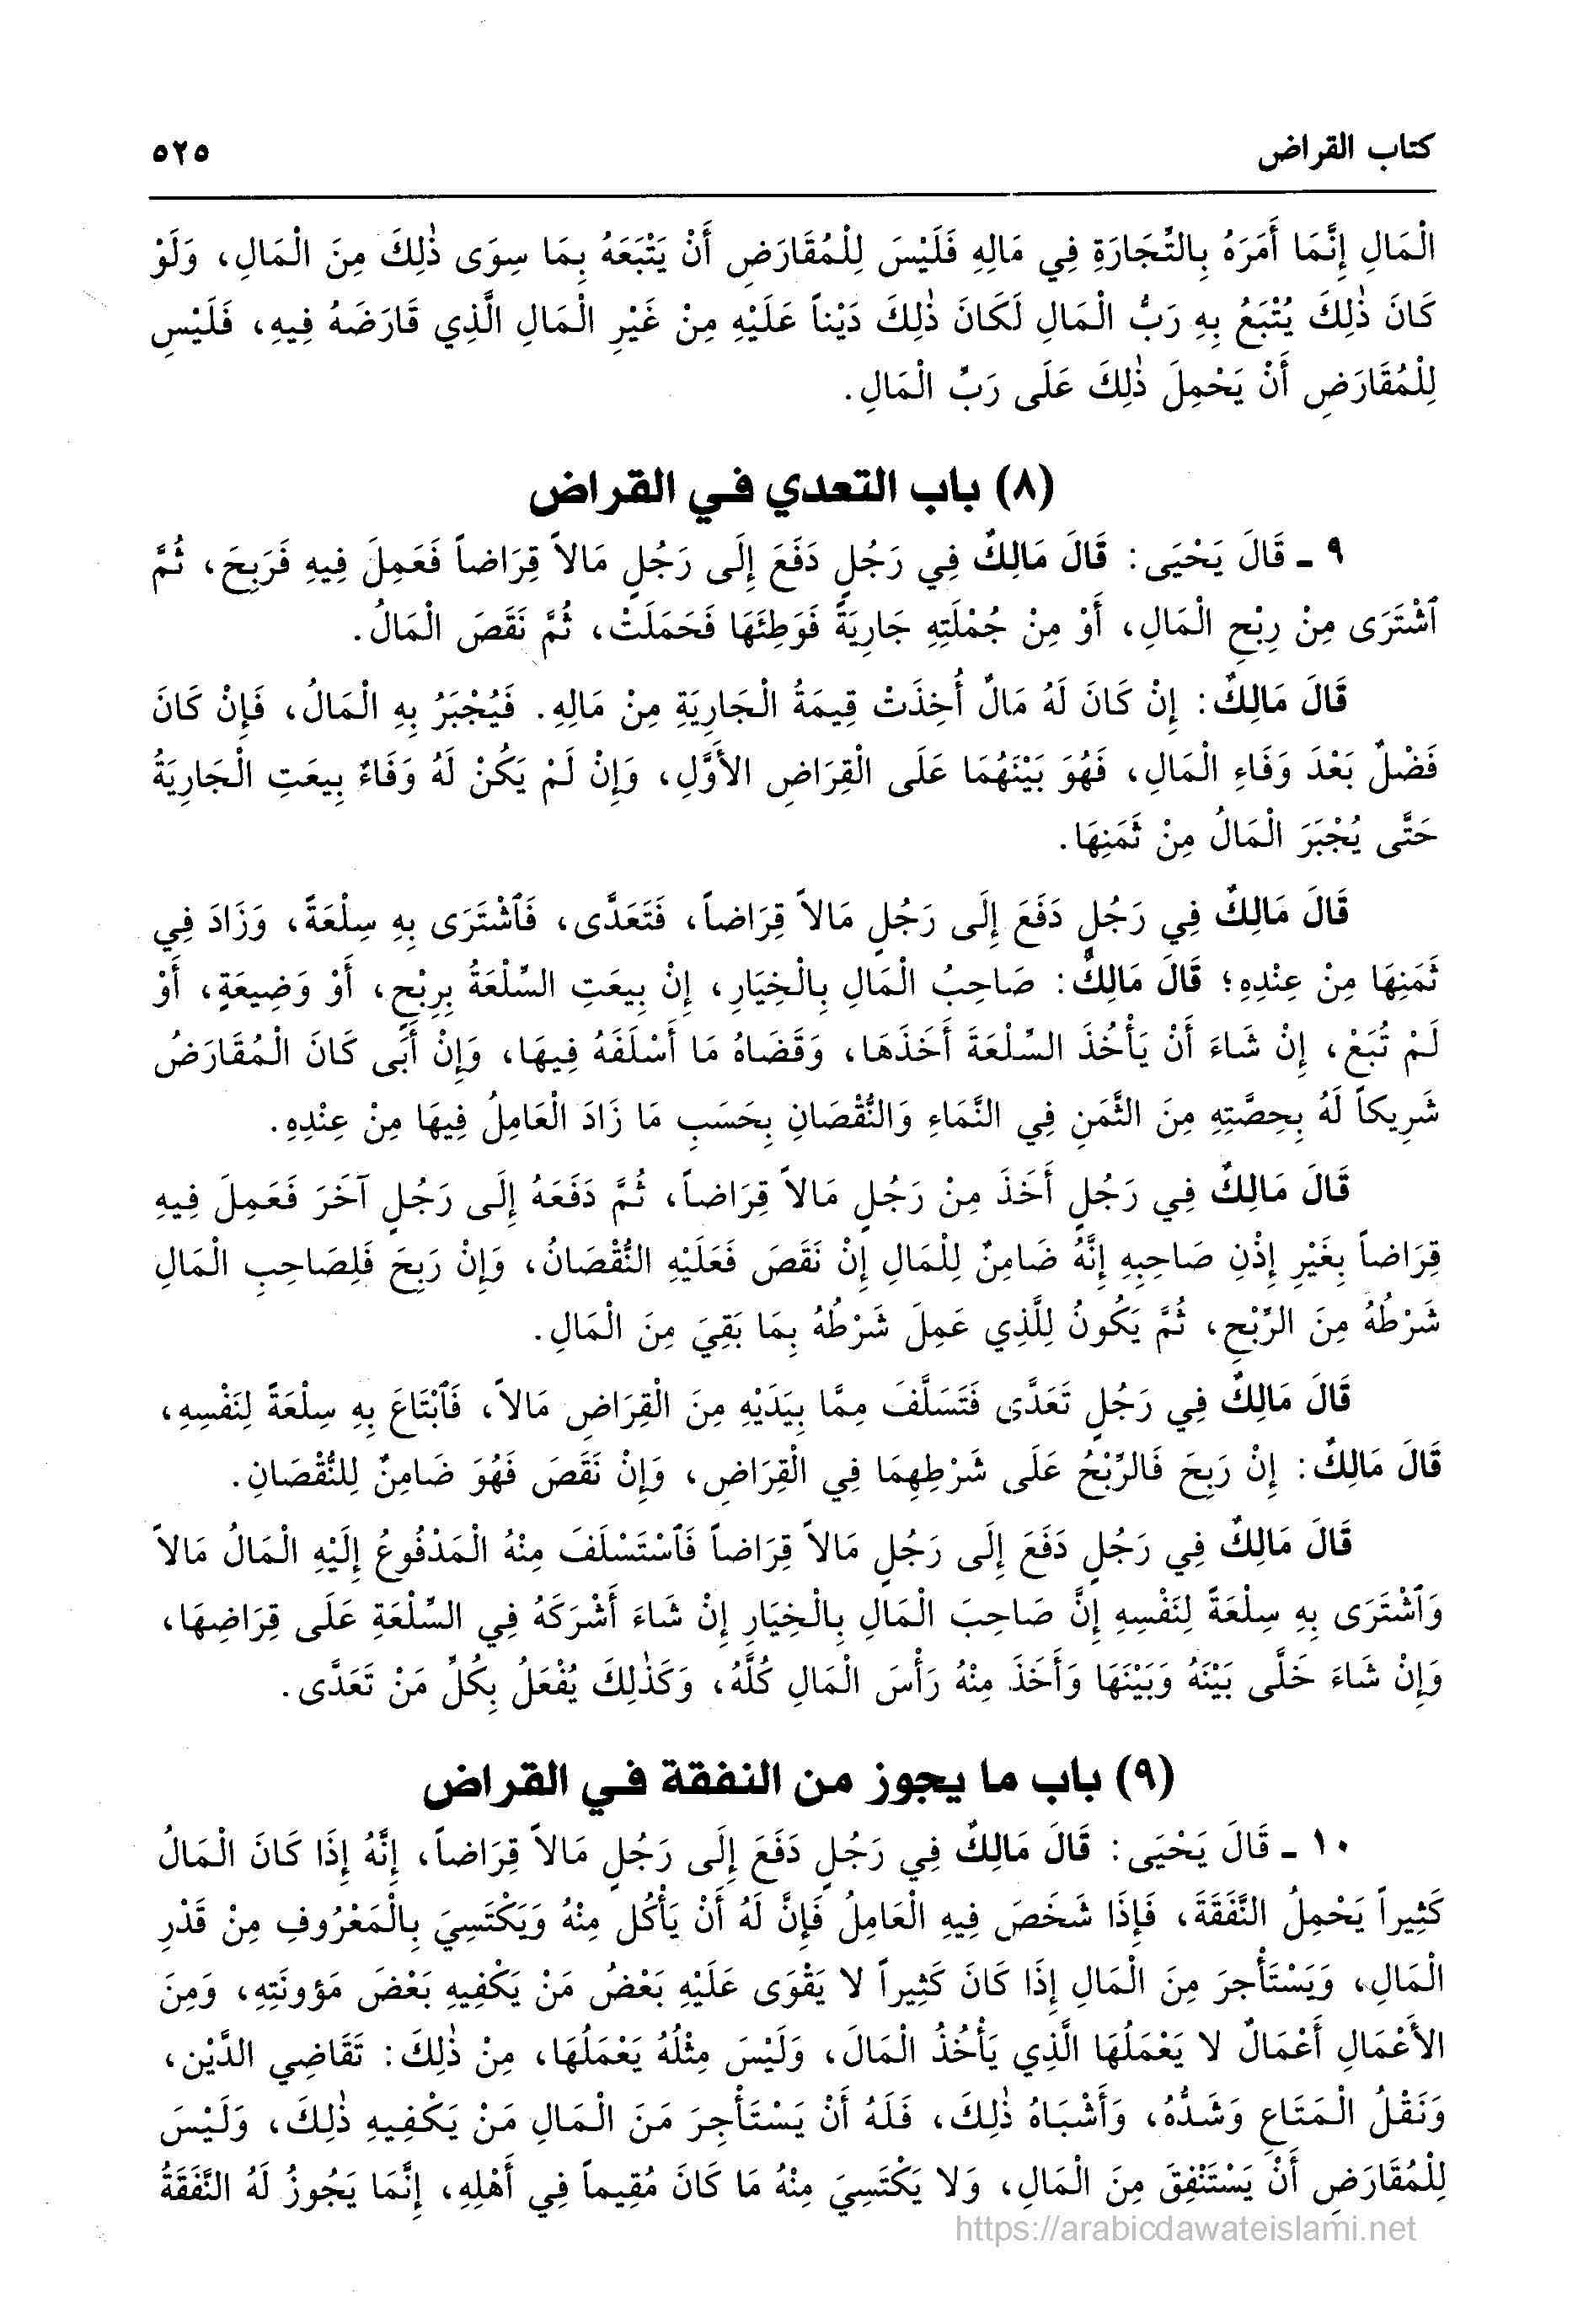 كتاب القراض ٥٢٥
الْمَالِ إِنَّمَا أَمَرَهُ بِالتِّجَارَةِ فِي مَالِهِ فَلَيْسَ لِلْمُقَارَضِ أَنْ يَتْبَعَهُ بِمَا سِوَى ذٰلِكَ مِنَ الْمَالِ، وَلَوْ
كَانَ ذٰلِكَ يُتْبَعُ بِهِ رَبُّ الْمَالِ لَكَانَ ذٰلِكَ دَيْناً عَلَيْهِ مِنْ غَيْرِ الْمَالِ الَّذِي قَارَضَهُ فِيهِ، فَلَيْسِ
لِلْمُقَارَضِ أَنْ يَحْمِلَ ذٰلِكَ عَلَى رَبِّ الْمَالِ.
(٨) باب التعدي في القراض
٩ ـ قَالَ يَحْيَى: قَالَ مَالِكٌ فِي رَجُلٍ دَفَعَ إِلَى رَجُلٍ مَالاً قِرَاضاً فَعَمِلَ فِيهِ فَرَبِحَ، ثُمَّ
ٱشْتَرَى مِنْ رِبْحِ الْمَالِ، أَوْ مِنْ جُمْلَتِهِ جَارِيَةً فَوَطِئَهَا فَحَمَلَتْ، ثُمَّ نَقَصَ الْمَالُ.
قَالَ مَالِكٌ: إِنْ كَانَ لَهُ مَالٌ أُخِذَتْ قِيمَةُ الْجَارِيَةِ مِنْ مَالِهِ. فَيُجْبَرُ بِهِ الْمَالُ، فَإِنْ كَانَ
فَضْلٌ بَعْدَ وَفَاءِ الْمَالِ، فَهُوَ بَيْنَهُمَا عَلَى الْقِرَاضِ الأَوَّلِ، وَإِنْ لَمْ يَكُنْ لَهُ وَفَاءٌ بِيعَتِ الْجَارِيَةُ
حَتَّى يُجْبَرَ الْمَالُ مِنْ ثَمَنِهَا.
قَالَ مَالِكٌ فِي رَجُلٍ دَفَعَ إِلَى رَجُلٍ مَالاً قِرَاضاً، فَتَعَدَّى، فَٱشْتَرَى بِهِ سِلْعَةً، وَزَادَ فِي
ثَمَنِهَا مِنْ عِنْدِهِ؛ قَالَ مَالِكٌ: صَاحِبُ الْمَالِ بِالْخِيَارِ، إِنْ بِيعَتِ السِّلْعَةُ بِرِبْحٍ، أَوْ وَضِيعَةٍ، أَوْ
لَمْ تُبَعْ، إِنْ شَاءَ أَنْ يَأْخُذَ السِّلْعَةَ أَخَذَهَا، وَقَضَاهُ مَا أَسْلَفَهُ فِيهَا، وَإِنْ أَبَى كَانَ الْمُقَارَضُ
شَرِيكاً لَهُ بِحِصَّتِهِ مِنَ الثَّمَنِ فِي النَّمَاءِ وَالنُّقْصَانِ بِحَسَبِ مَا زَادَ الْعَامِلُ فِيهَا مِنْ عِنْدِهِ.
قَالَ مَالِكٌ فِي رَجُلٍ أَخَذَ مِنْ رَجُلٍ مَالاً قِرَاضاً، ثُمَّ دَفَعَهُ إِلَى رَجُلٍ آخَرَ فَعَمِلَ فِيهِ
قِرَاضاً بِغَيْرِ إِذْنِ صَاحِبِهِ إِنَّهُ ضَامِنٌ لِلْمَالِ إِنْ نَقَصَ فَعَلَيْهِ النُّقْصَانُ، وَإِنْ رَبِحَ فَلِصَاحِبِ الْمَالِ
شَرْطُهُ مِنَ الرِّبْحِ، ثُمَّ يَكُونُ لِلَّذِي عَمِلَ شَرْطُهُ بِمَا بَقِيَ مِنَ الْمَالِ.
قَالَ مَالِكٌ فِي رَجُلٍ تَعَدَّى فَتَسَلَّفَ مِمَّا بِيَدَيْهِ مِنَ الْقِرَاضِ مَالاً، فَٱبْتَاعَ بِهِ سِلْعَةً لِنَفْسِهِ،
قَالَ مَالِكٌ: إِنْ رَبِحَ فَالرِّبْحُ عَلَى شَرْطِهِمَا فِي الْقِرَاضِ، وَإِنْ نَقَصَ فَهُوَ ضَامِنٌ لِلنُّقْصَانِ.
قَالَ مَالِكٌ فِي رَجُلٍ دَفَعَ إِلَى رَجُلٍ مَالاً قِرَاضاً فَٱسْتَسْلَفَ مِنْهُ الْمَدْفُوعُ إِلَيْهِ الْمَالُ مَالاً
وَٱشْتَرَى بِهِ سِلْعَةً لِنَفْسِهِ إِنَّ صَاحِبَ الْمَالِ بِالْخِيَارِ إِنْ شَاءَ أَشْرَكَهُ فِي السِّلْعَةِ عَلَى قِرَاضِهَا،
وَإِنْ شَاءَ خَلَّى بَيْنَهُ وَبَيْنَهَا وَأَخَذَ مِنْهُ رَأْسَ الْمَالِ كُلَّهُ، وَكَذٰلِكَ يُفْعَلُ بِكُلِّ مَنْ تَعَدَّى.
(٩) باب ما يجوز من النفقة في القراض
١٠ ـ قَالَ يَحْيَى: قَالَ مَالِكٌ فِي رَجُلٍ دَفَعَ إِلَى رَجُلٍ مَالاً قِرَاضاً، إِنَّهُ إِذَا كَانَ الْمَالُ
كَثِيراً يَحْمِلُ النَّفَقَةَ، فَإِذَا شَخَصَ فِيهِ الْعَامِلُ فَإِنَّ لَهُ أَنْ يَأْكُل مِنْهُ وَيَكْتَسِيَ بِالْمَعْرُوفِ مِنْ قَدْرِ
الْمَالِ، وَيَسْتَأْجرَ مِنَ الْمَالِ إِذَا كَانَ كَثِيراً لا يَقْوَى عَلَيْهِ بَعْضُ مَنْ يَكْفِيهِ بَعْضَ مَؤونَتِهِ، وَمِنَ
الأَعْمَالِ أَعْمَالٌ لا يَعْمَلُهَا الَّذِي يَأْخُذُ الْمَالَ، وَلَيْسَ مِثْلُهُ يَعْمَلُهَا، مِنْ ذٰلِكَ: تَقَاضِي الدَّيْنِ،
وَنَقْلُ الْمَتَاعِ وَشَدُّهُ، وَأَشْبَاهُ ذٰلِكَ، فَلَهُ أَنْ يَسْتَأْجِرَ مَنَ الْمَالِ مَنْ يَكْفِيهِ ذٰلِكَ، وَلَيْسَ
لِلْمُقَارَضِ أَنْ يَسْتَنْفِقَ مِنَ الْمَالِ، وَلا يَكْتَسِيَ مِنْهُ مَا كَانَ مُقِيماً فِي أَهْلِهِ، إِنَّمَا يَجُوزُ لَهُ النَّفَقَةُ
https://arabicdawateislami.net